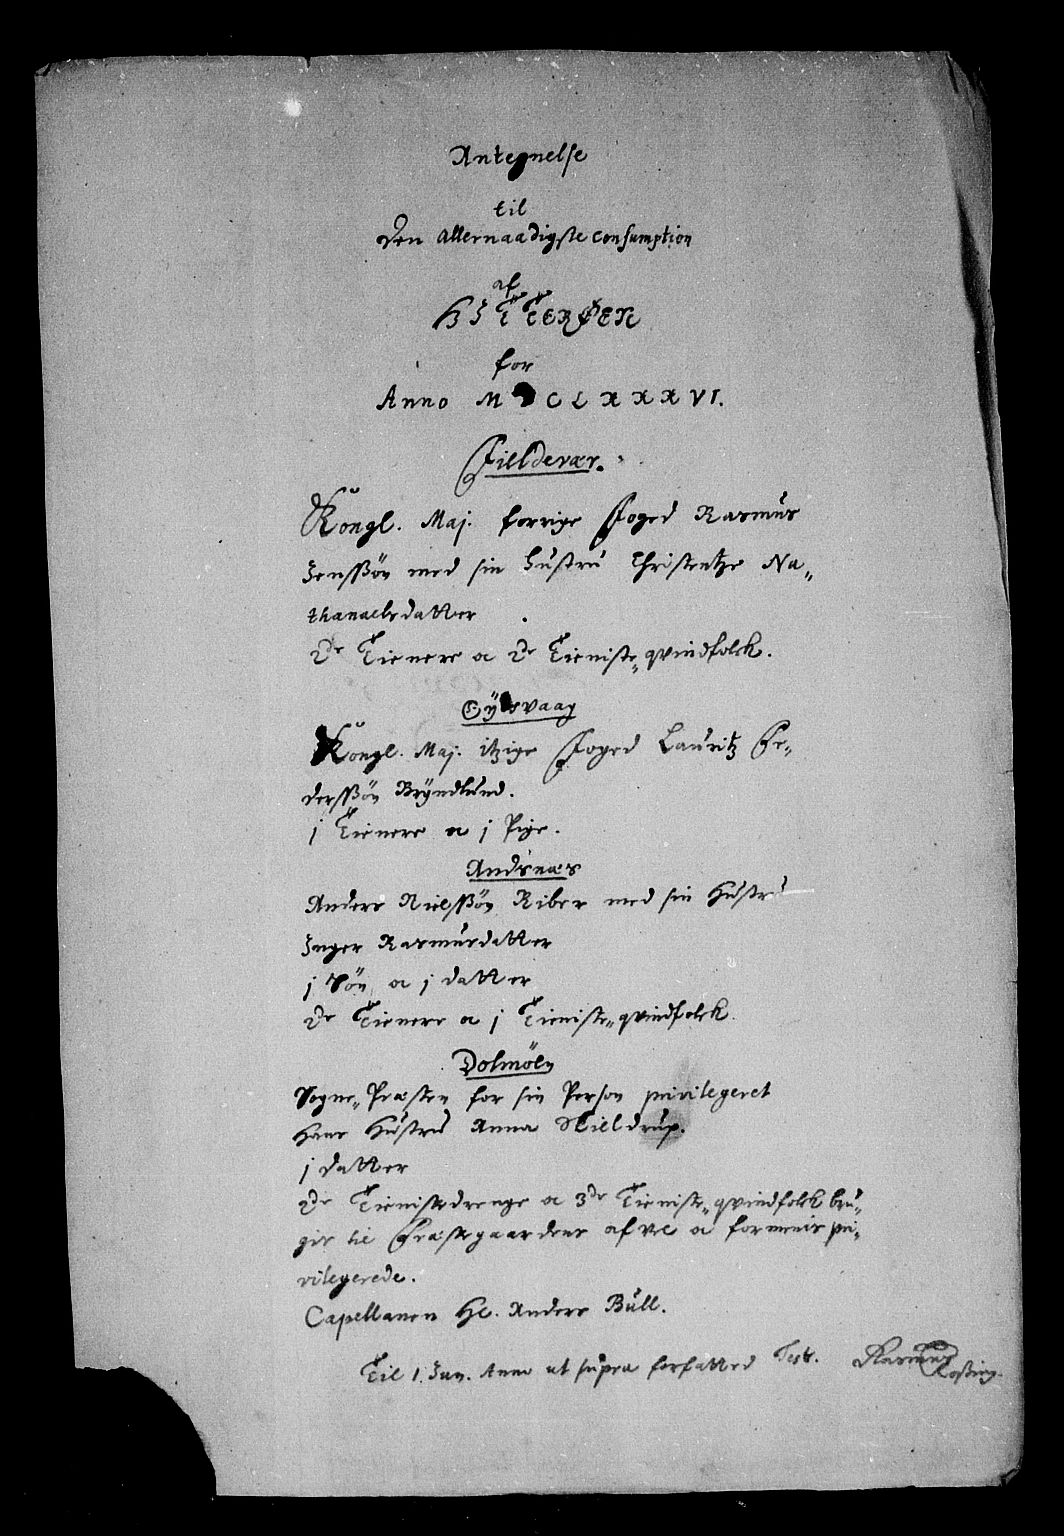 Antegnelse
til
Den allernaadigste consumption
af
HITTERØEN
for
Anno M CLXXXVI.
Fielldevær.
Kongl. Maj. forrige Foged Rasmus
Jenssøn med sin Hustru Christentze Na„
thanaelsdatter
2de Tienere oc 2de Tieniste„qvindfolck.
vaag
Kongl. Maj. itzige Foged Lauritz Pe„
derssøn Bryndlund.
j Tienere oc j Pige.
Andsnæs
Anders Nielssøn Riber med sin Hustru
Inger Rasmusdatter
j Søn oc j datter
2de Tienere oc j Tieniste„qvindfolck.
Dolmöen
Sogne„Præsten for sin Person privilegeret
Hans Hustru Anna Skieldrup.
j datter
2de Tienistedrenge oc 3de Tieniste„qvindfolck bru„
gis til Præstegaardens afvel oc formenis pri„
vilegerede.
Capellanen Hl. Anders Büll.
Til 1. Jan. Anno ut supra forfatted Test. Rasmus